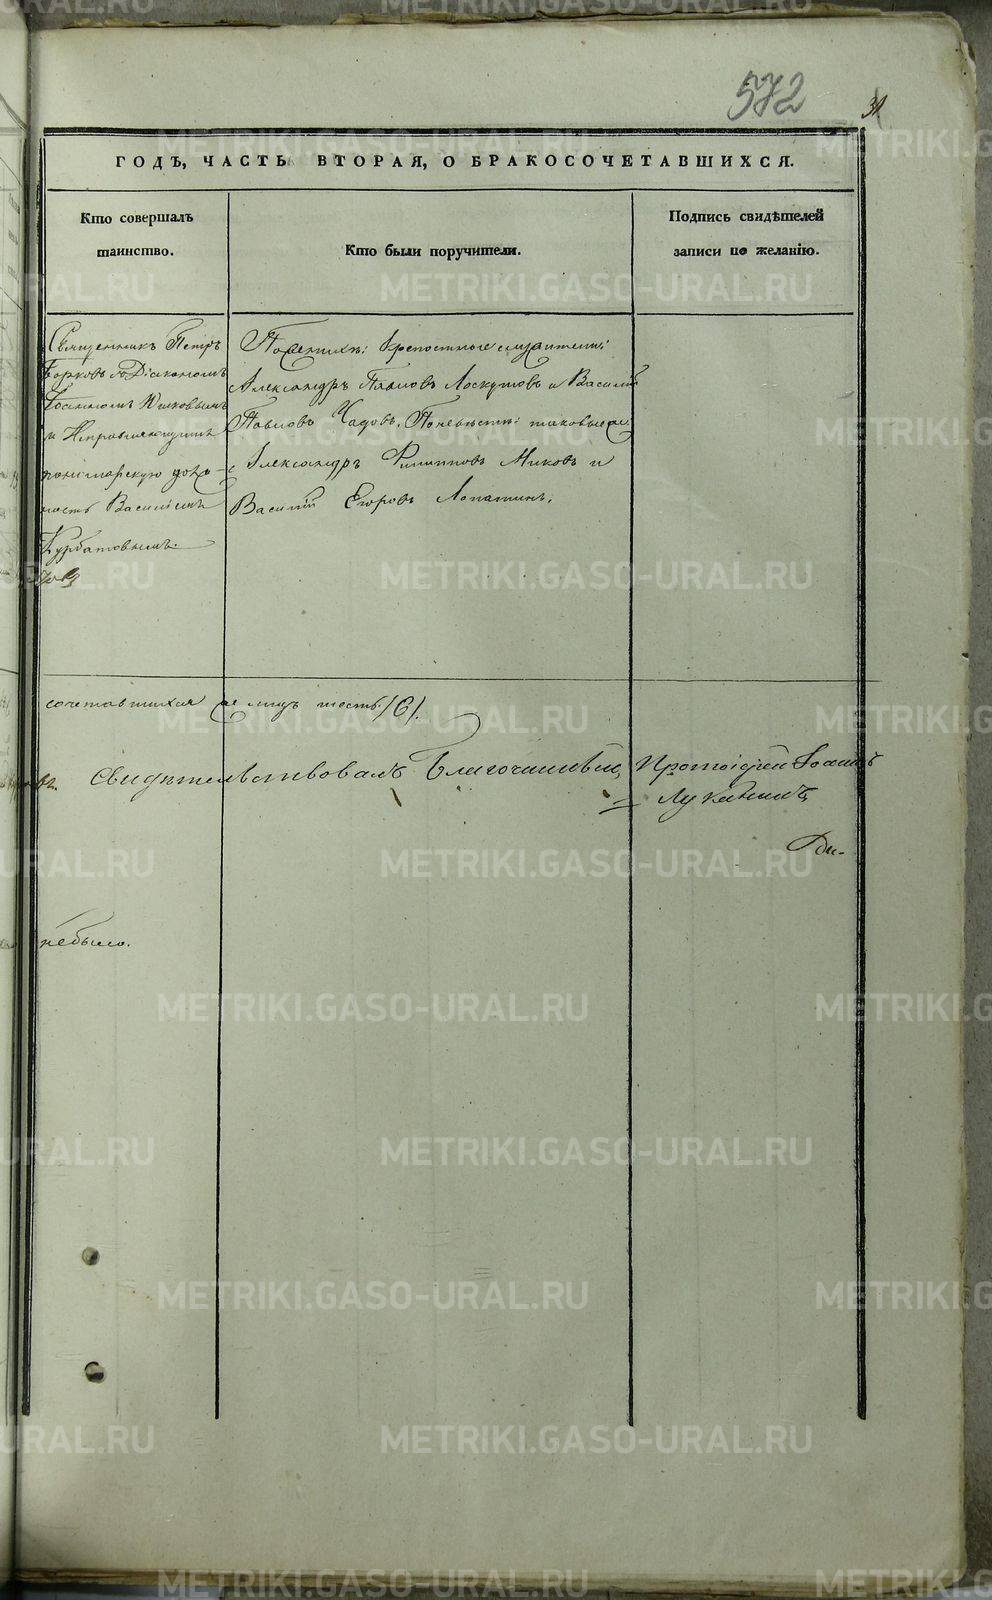 572
31
ГОДЪ, ЧАСТЬ ВТОРАЯ, О БРАКОСОЧЕТАВШИХСЯ.
Кто совершалъ таинство.
Кто были поручители.
Подпись свидѣтелей записи по желанію.
Священникъ Петръ
Діакономъ
и Исправляющимъ
пономарскую долж-
ность Василіемъ
Курбатовымъ.
По женихѣ: крепостные служители:
Александръ Павловъ Лоскутовъ и Василій
Павловъ Чадовъ. По невѣсте: таковые же
Александръ Филипповъ Миковъ и
Василій Егоровъ Лопатинъ.
сочетавшихся лицъ шесть /6/.
Свидѣтельствовалъ Благочинный, Протоіерей Іоаннъ
Луканинъ
небыло.
METRIKI.GASO-URAL.RU